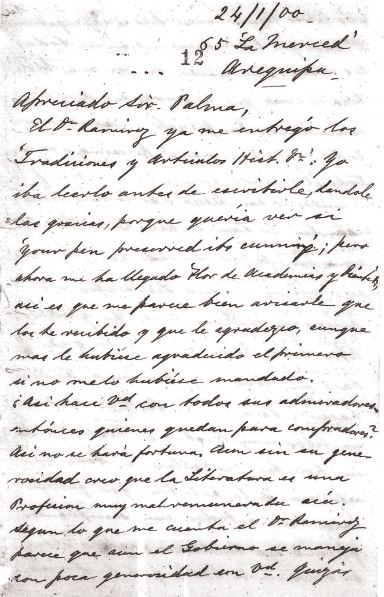 24/1/00
12
85 'La Merced'
Arequipa.
Apreciado Sor. Palma,
El Dr. Ramirez ya me entregó los
'Tradiciones y Articulos Hist. &a'. Yo
iba leerlo antes de escribirle, dandole
las gracias, porque quería ver si
'your pen preserved its cunning'; pero
ahora me ha llegado 'Flor de Academias y
asi es que me parece bien avisarle que
los he recibido y que le agradezco, aunque
mas le hubiese agradecido el primero
si no melo hubiése mandado.
¿Asi hace Vd con todos sus admiradores
entónces quienes quedan para compradores?
Asi no se hará fortuna. Aun sin su gene-
rosidad creo que la Literatura es una
Profesion muy mal remunerada acá.
Segun lo que me cuenta el Dr Ramirez
parece que aun el Gobierno se maneja
con poca generosidad con Vd. Quizás